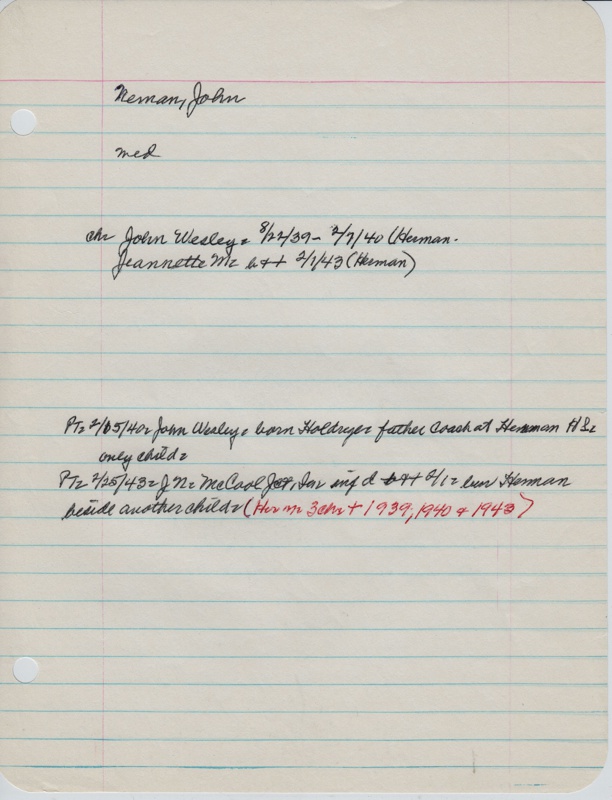 Neman, John
med
chr John Wesley = 8/22/39 - 2/7/40 (Herman.
Jeannette M = b & + 2/1/43 (Herman)
PT = 2/15/40 = John Wesley = born Holdrege = father Coach at Herman HS =
only child =
PT = 2/25/43 = J N = McCool Jct, inf d b & + 2/1 = bur Herman
beside another child = (Her M = 3 chr + 1939, 1940 & 1943)